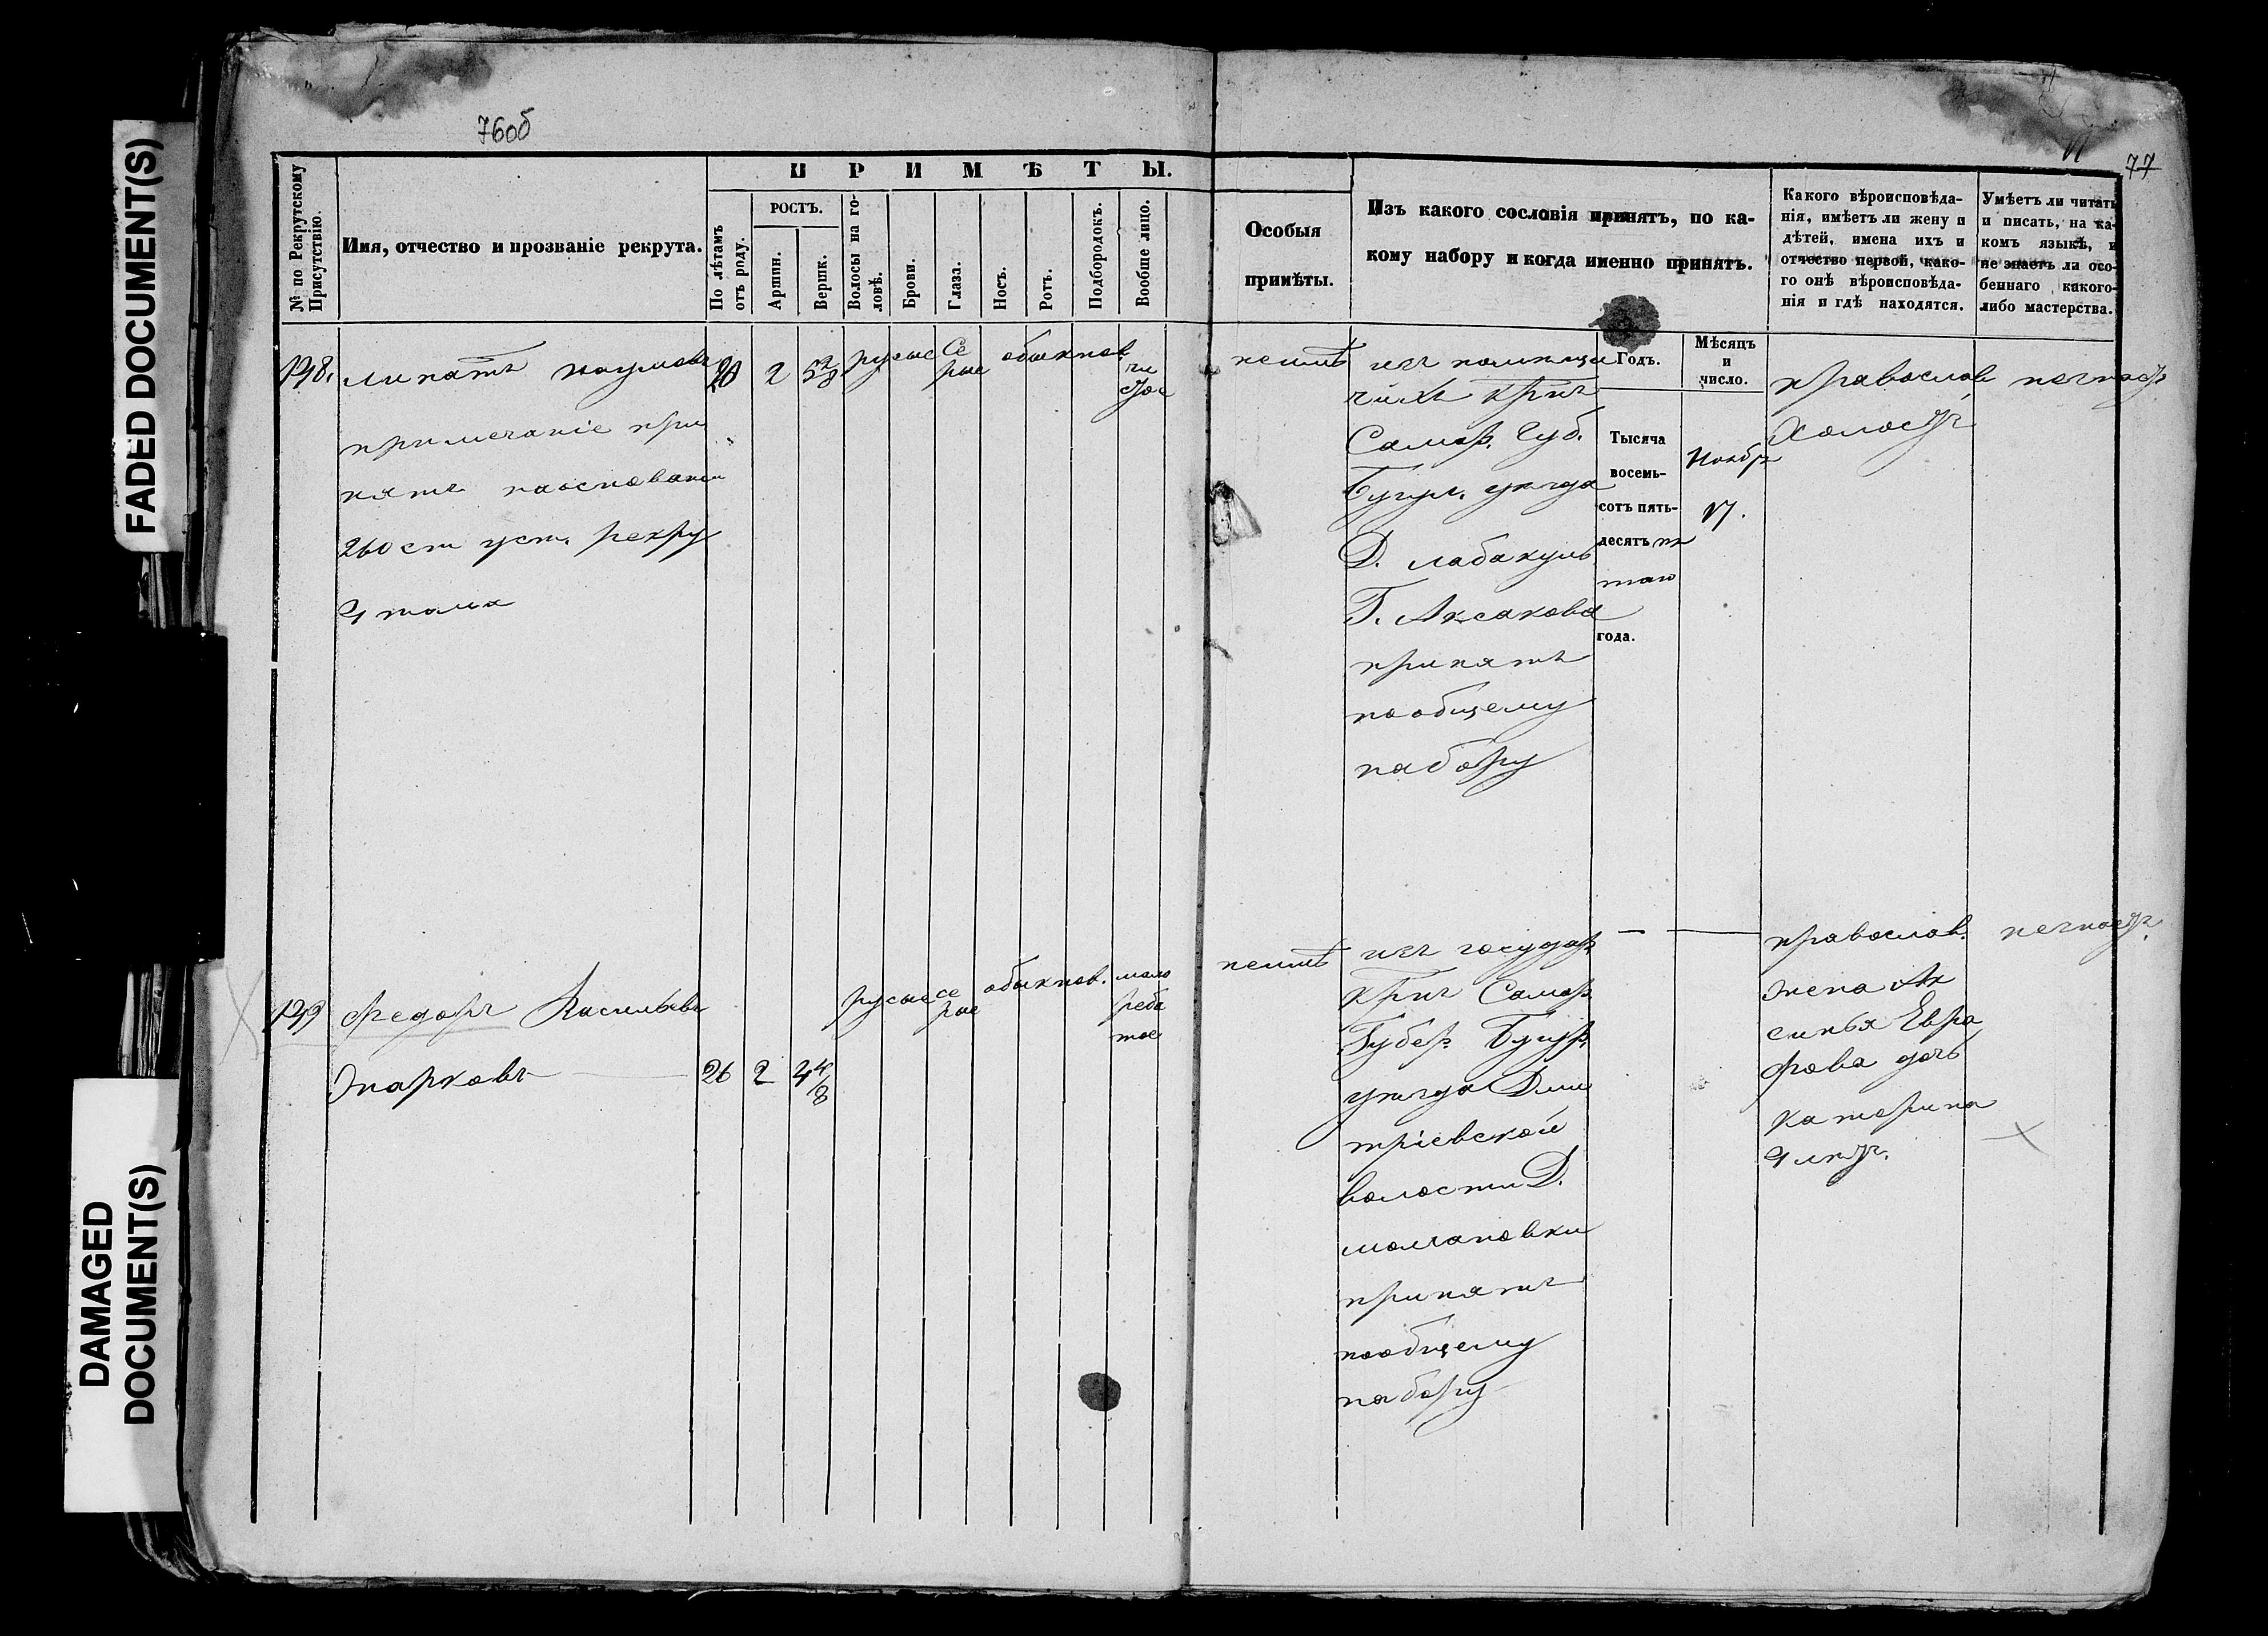 FADED DOCUMENT(S)
DAMAGED
DOCUMENT(S)
76об
77
№ по Рекрутскому
Присутствію.
Имя, отчество и прозваніе рекрута.
ПРИМѢТЫ.
По лѣтамъ
отъ роду.
РОСТЪ.
Аршин.
Вершк.
Волосы на го-
ловѣ.
Брови.
Глаза.
Носъ.
Ротъ.
Подбородокъ.
Вообще лицо.
Особыя
примѣты.
Изъ какого сословія принятъ, по ка-
кому набору и когда именно принятъ.
Годъ.
Мѣсяцъ
и
число.
Какого вѣроисповѣда-
нія, имѣетъ ли жену и
дѣтей, имена ихъ и
отчество первой, како-
го онѣ вѣроисповѣда-
нія и гдѣ находятся.
Умѣетъ ли читать
и писать, на ка-
комъ языкѣ, и
не знаетъ ли осо-
беннаго какого-
либо мастерства.
198.
липатъ наумовъ
20
2
5 2/8
русые
Се
рые
обыкнов
чи
стое
примечаніе при
нятъ наосновании
260 ст уст. рекру
4 тома
неимѣ
изъ помещи
чихъ крнъ
Самар. Губ.
Бугул. уезда
Д.
Г. Аксакова
принятъ
пообщему
набору
Тысяча
восемь-
сотъ пять-
десятъ пя
таго
года.
Ноябр
17.
православ
холостъ
незнаетъ
199
Федоръ Васильевъ
Жарковъ
26
2
4 4/8
русые
се
рые
обыкнов.
мало
ряба
тое
неимѣ
изъ государ.
крнъ Самар.
Губер. Бугур.
уезда Дми
тріевской
волости Д.
молчановки
принятъ
пообщему
набору
православ.
жена Ак
синья Евра
фова дочь
катерина
4 летъ.
незнаетъ